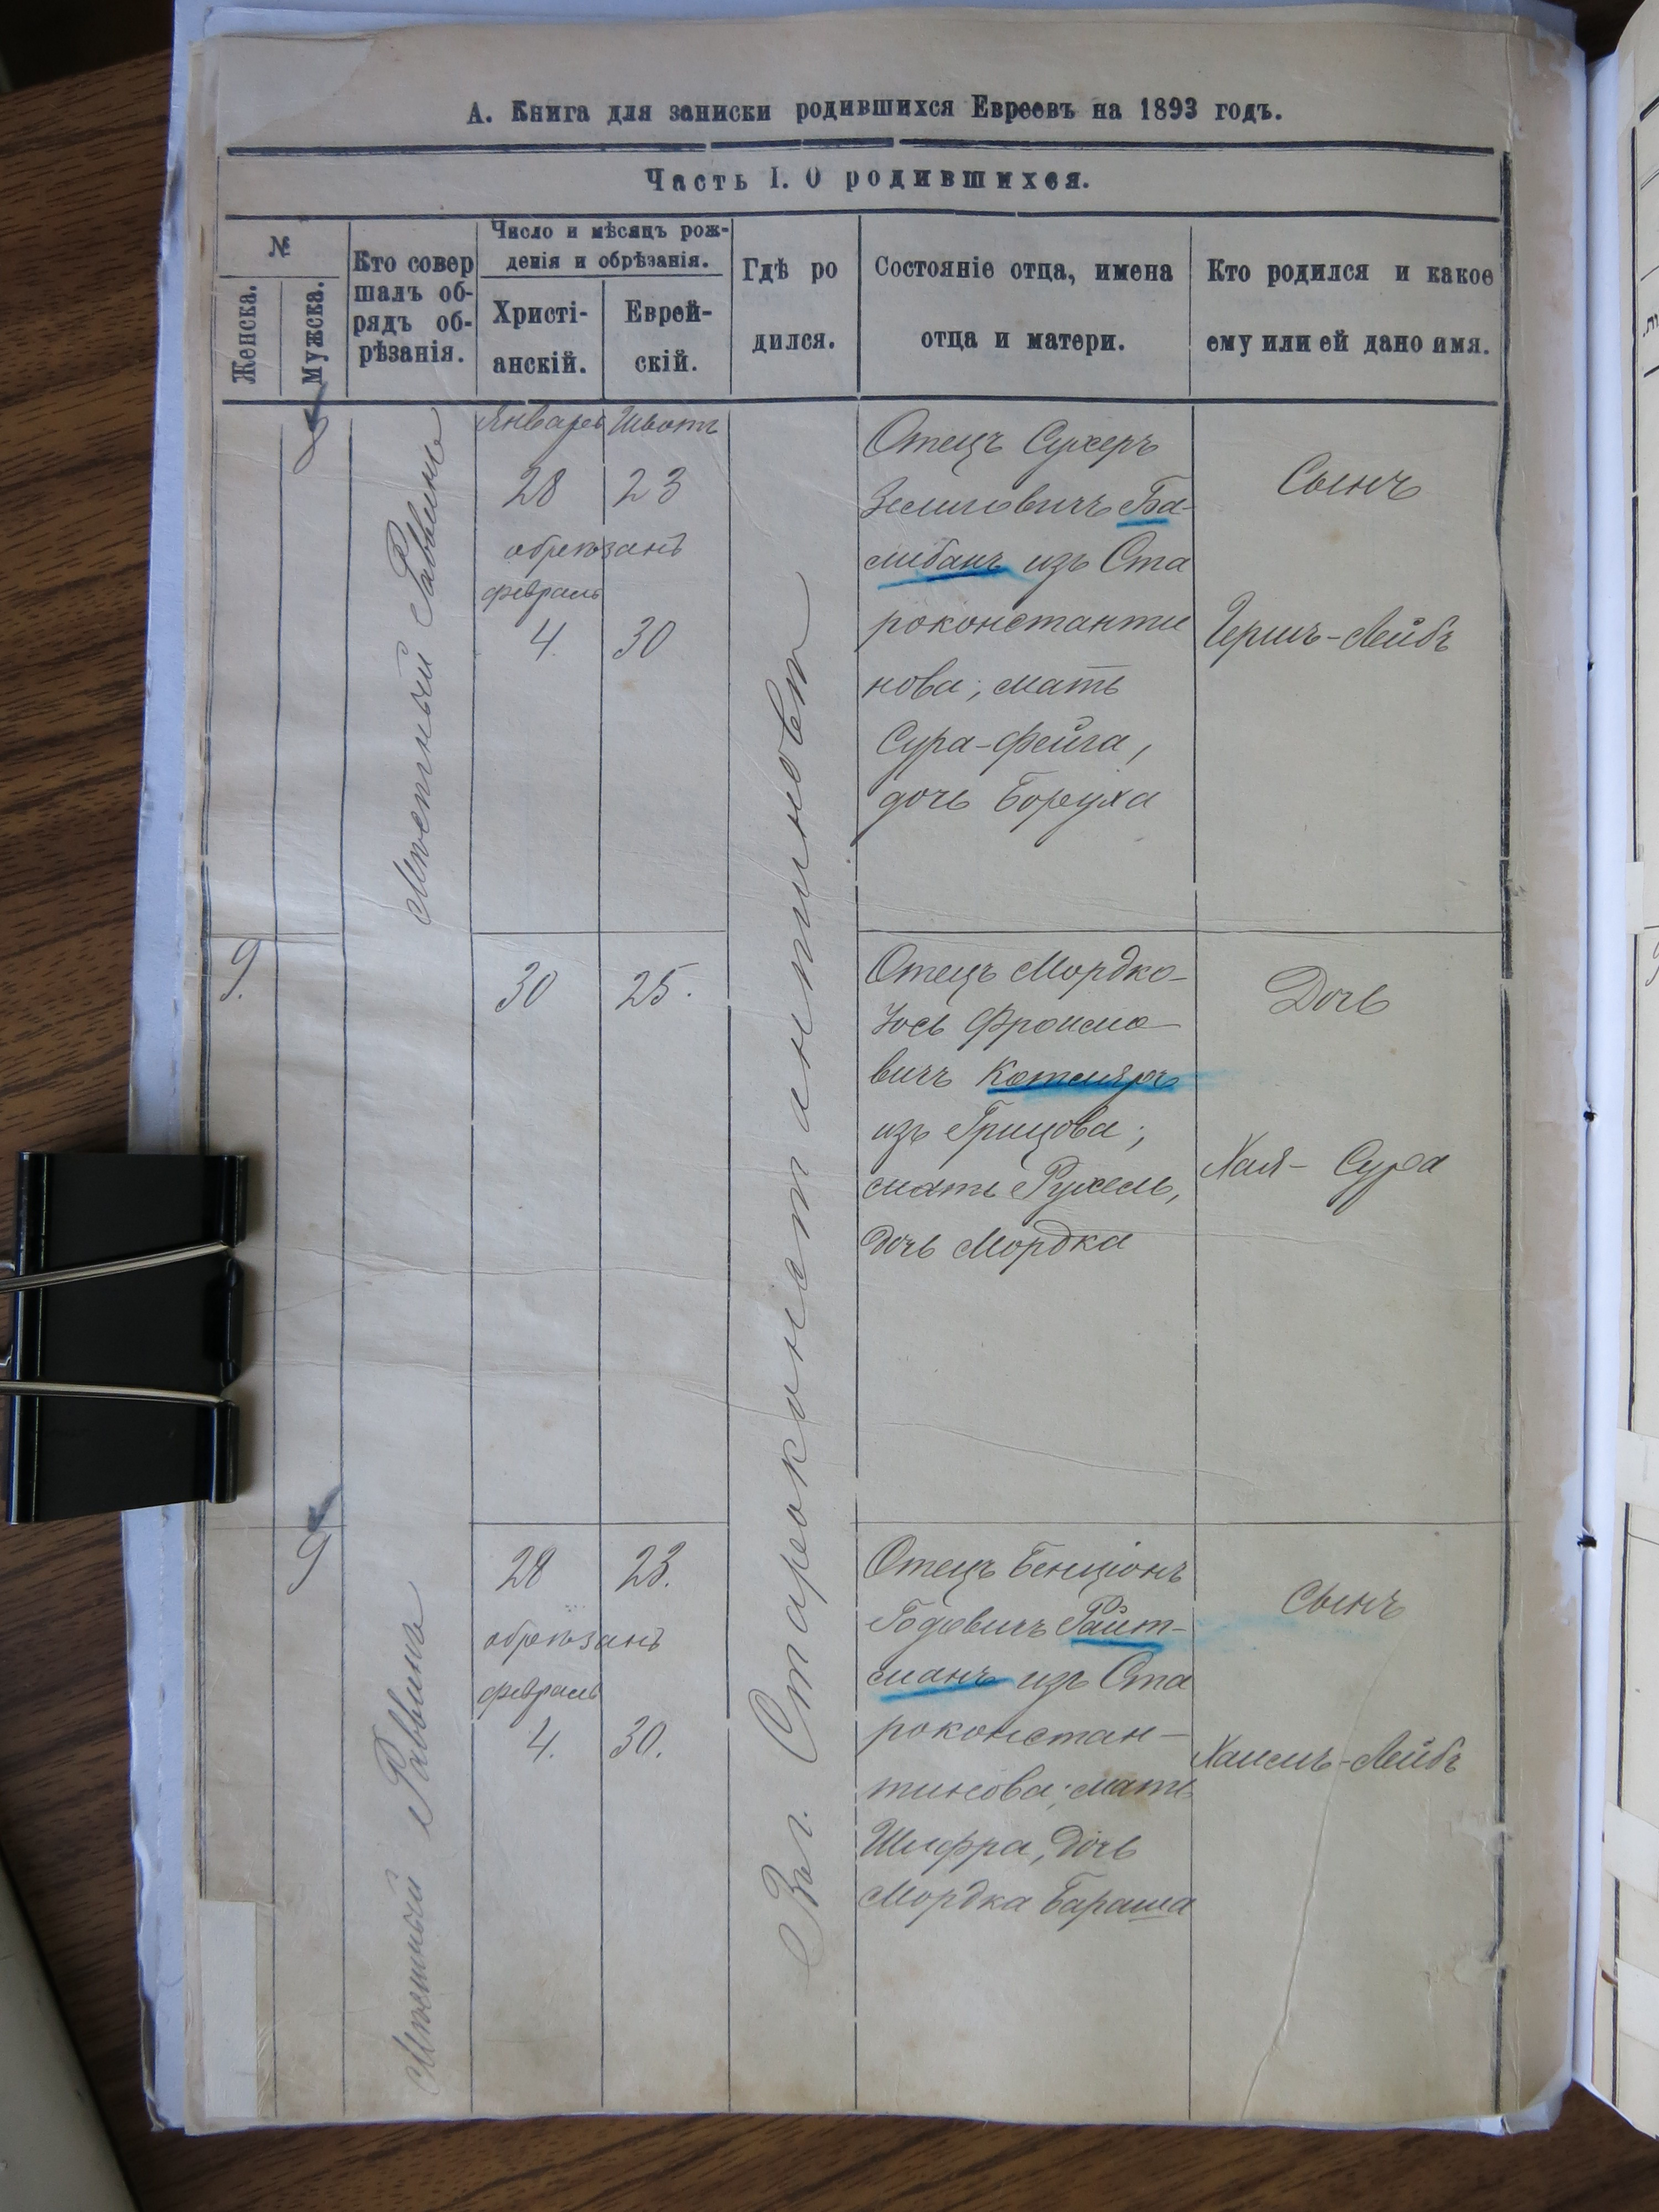 А. Книга для записки родившихся Евреевъ на 1893 годъ.
Часть I. О родившихся.
№
Женска.
Мужска.
Кто совер
шалъ об-
рядъ об-
рѣзанія.
Число и мѣсяцъ рож-
денія и обрѣзанія.
Христі-
анскій.
Еврей-
скій.
Гдѣ ро
дился.
Состояніе отца, имена
отца и матери.
Кто родился и какое
ему или ей дано имя.
8
Мѣстный Раввинъ
Январь
28
обрѣзанъ
февраль
4
Шватъ
23
30
Въ г. Староконстантиновѣ
Отецъ Сухеръ
Зелиговичъ Ба-
либанъ изъ Ста
роконстанти
нова; мать
Сура-Фейга,
дочь Боруха
Сынъ
Гершъ-Лейбъ
9.
30
25.
Отецъ Мордко-
Іось Фроимо-
вичъ Котляръ
изъ Грицова;
мать Рухель,
дочь Мордка
Дочь
Хая- Сура
9
Мѣстный Раввинъ
28
обрѣзанъ
февраль
4.
23.
30.
Отецъ Бенціонъ
Годовичъ Райт-
манъ изъ Ста
роконстан-
тинова; мать
Шифра, дочь
Мордка Бараша
Сынъ
Хаимъ-Лейбъ